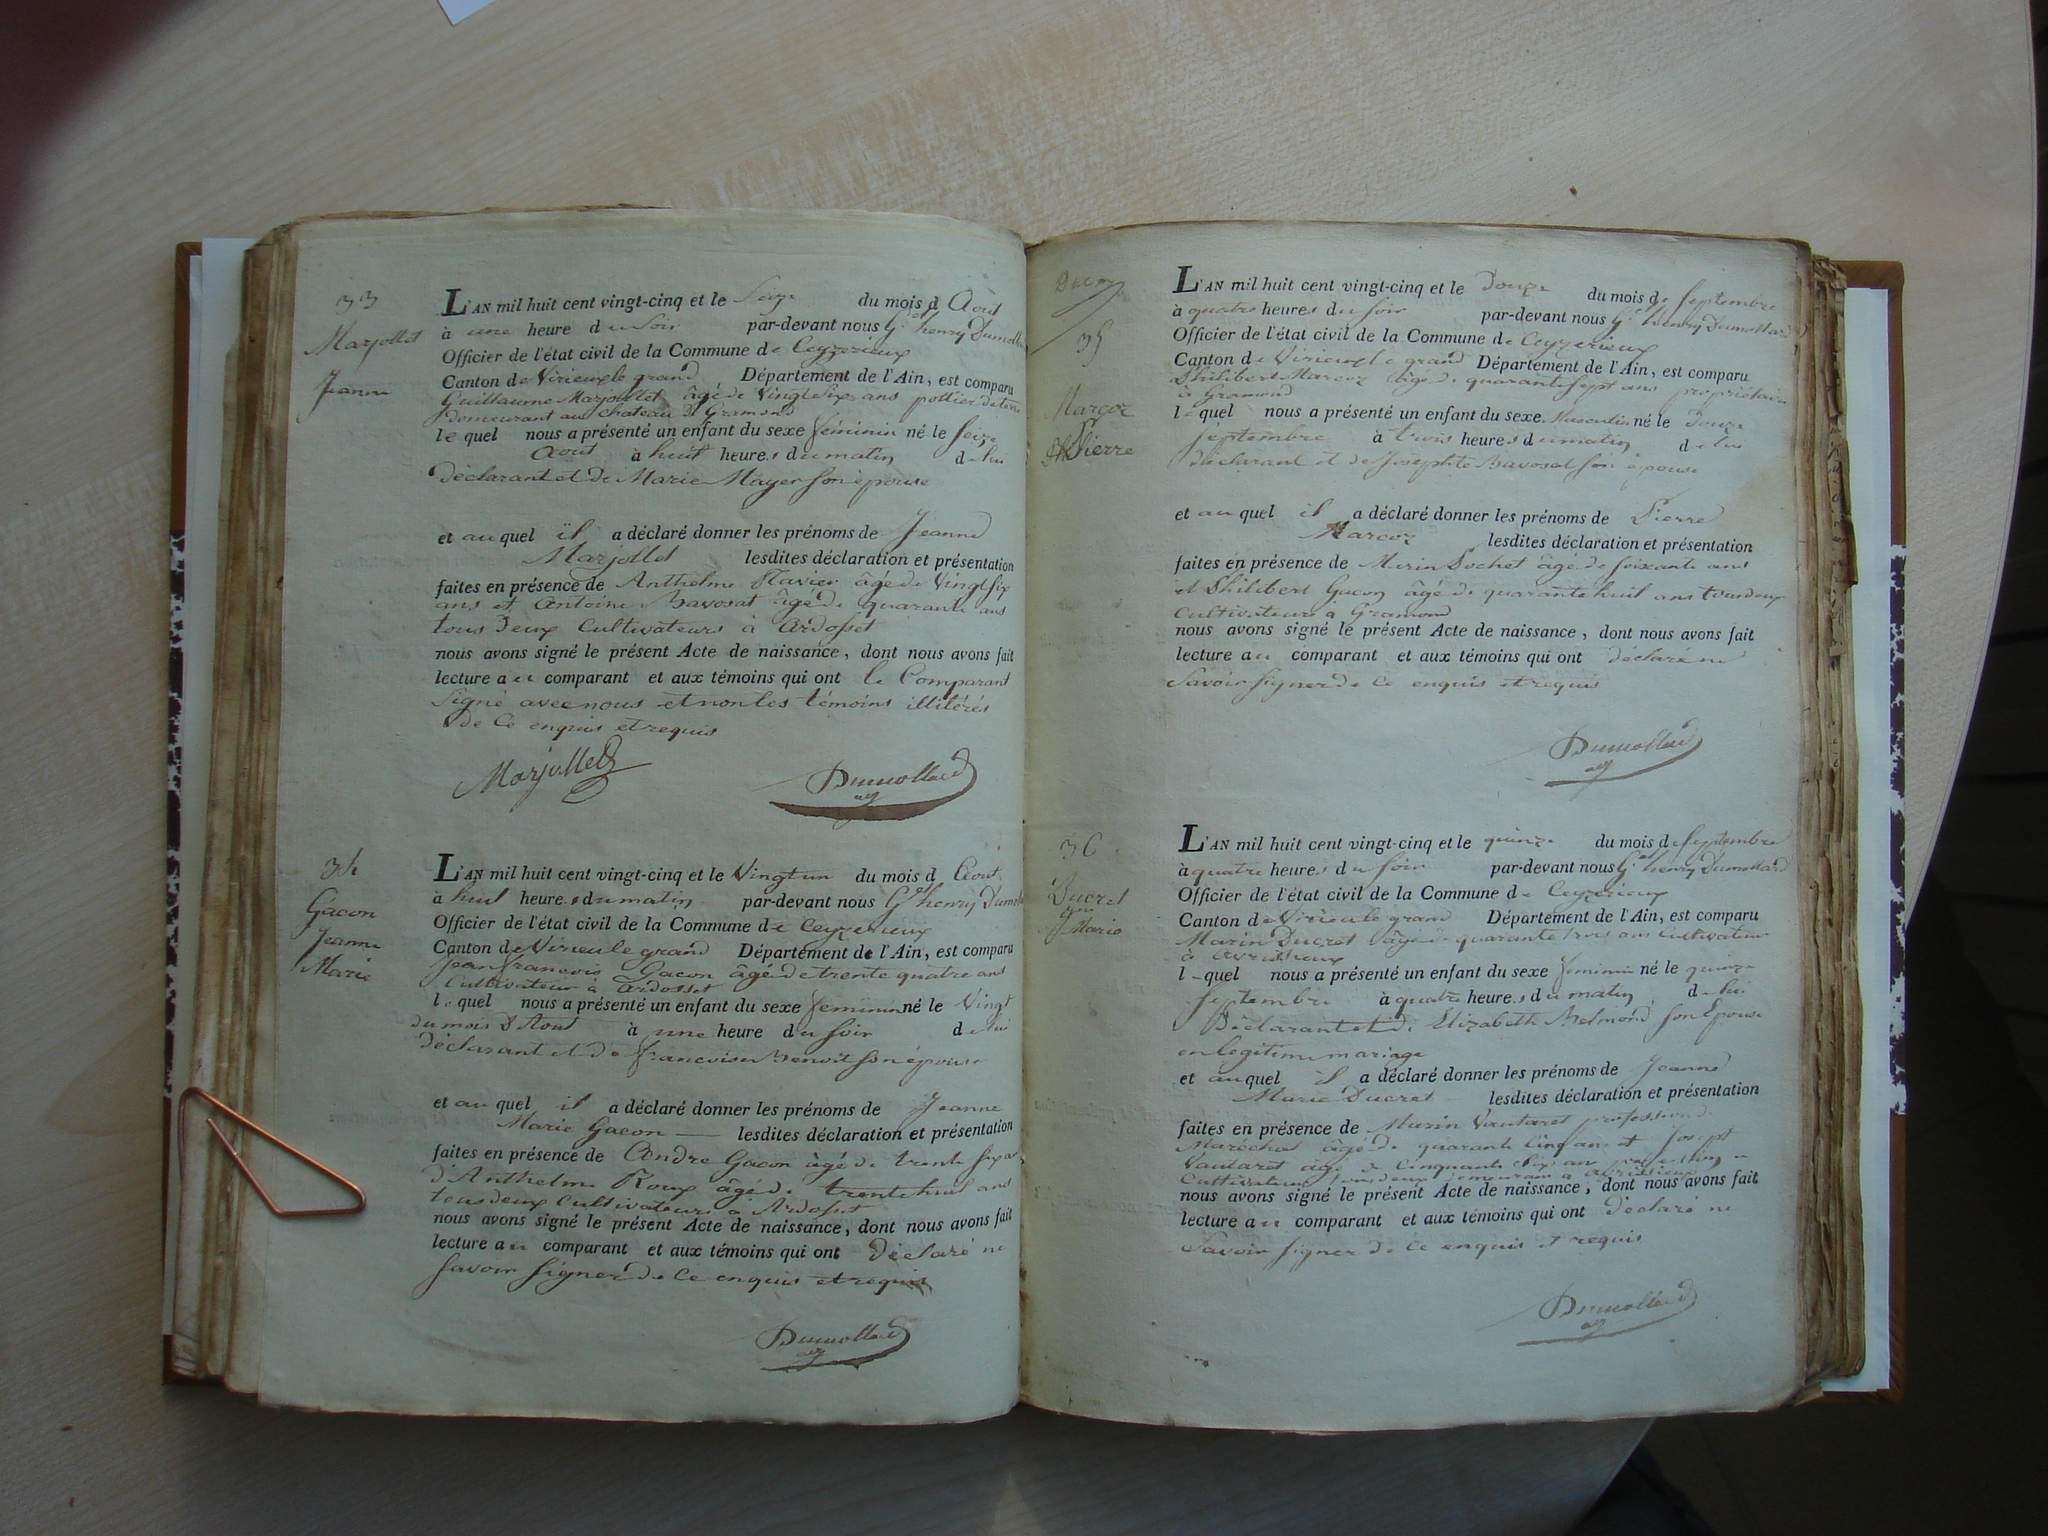 33
Marjollet
Jeanne
L'AN mil huit cent vingt-cinq et le Seize du mois d Aout
à une heure du Soir par-devant nous Gd henry Dumollard
Officier de l'état civil de la Commune de Ceyzerieux
Canton de Virieux le grand Département de l'Ain, est comparu
Guillaume Marjollet âgé de Vingt Six ans pottier de terre
demeurant au chateau de Gramond
le quel nous a présenté un enfant du sexe féminin né le Seize
Aout à huit heures du matin de lui
déclarant et de Marie Mayer son épouse
et au quel il a déclaré donner les prénoms de Jeanne
Marjollet lesdites déclaration et présentation
faites en présence de Anthelme Navier âgé de Vingt Six
ans et Antoine Bavosat âgé de quarante ans
tous deux Cultivateurs à Ardosset
nous avons signé le présent Acte de naissance, dont nous avons fait
lecture au comparant et aux témoins qui ont le Comparant
Signé avec nous et non les témoins illitérés
de Ce enquis et requis
Marjollet Dumollard
34
Gacon
Jeanne
Marie
L'AN mil huit cent vingt-cinq et le Vingt un du mois d Aout
à huit heures du matin par-devant nous Gd henry Dumollard
Officier de l'état civil de la Commune de Ceyzerieux
Canton de Virieu le grand Département de l'Ain, est comparu
Jean francois Gacon âgé de trente quatre ans
Cultivateur à Ardosset
le quel nous a présenté un enfant du sexe feminin né le Vingt
du mois d'Aout à une heure du Soir de lui
déclarant et de francoise Benoit son épouse
et au quel il a déclaré donner les prénoms de Jeanne
Marie Gacon lesdites déclaration et présentation
faites en présence de Andre Gacon âgé de trente six ans
d'Anthelme Roux âgé de trente huit ans
tous deux Cultivateurs à Ardosset
nous avons signé le présent Acte de naissance, dont nous avons fait
lecture au comparant et aux témoins qui ont Déclaré ne
Savoir Signer de Ce enquis et requis
Dumollard
35
Marcoz
Pierre
L'AN mil huit cent vingt-cinq et le Douze du mois de Septembre
à quatre heures du soir par-devant nous Gd henry Dumollard
Officier de l'état civil de la Commune de Ceyzerieux
Canton de Virieux le grand Département de l'Ain, est comparu
Philibert Marcoz âgé de quarante sept ans propriétaire
à Gramond
le quel nous a présenté un enfant du sexe Masculin né le Douze
Septembre à trois heures du matin de lui
déclarant et de Josephte Bavosat son épouse
et au quel il a déclaré donner les prénoms de Pierre
Marcoz lesdites déclaration et présentation
faites en présence de Mirin Sochet âgé de soixante ans
et Philibert Gacon âgé de quarante huit ans tous deux
Cultivateurs à Gramond
nous avons signé le présent Acte de naissance, dont nous avons fait
lecture au comparant et aux témoins qui ont déclaré ne
Savoir Signer de Ce enquis et requis
Dumollard
36
Ducret
Marie
L'AN mil huit cent vingt-cinq et le quinze du mois de Septembre
à quatre heures du Soir par-devant nous Gd henry Dumollard
Officier de l'état civil de la Commune de Ceyzerieux
Canton de Virieu le grand Département de l'Ain, est comparu
Marin Ducret âgé de quarante trois ans Cultivateur
à avrissieux
le quel nous a présenté un enfant du sexe feminin né le quinze
Septembre à quatre heures du matin de lui
Déclarant et de Elizabeth Belmond son Epouse
en legitime mariage
et au quel il a déclaré donner les prénoms de Jeanne
Marie Ducret lesdites déclaration et présentation
faites en présence de Marin Vautaret profession de
Maréchal âgé de quarante Cinq ans et Joseph
Vautaret âgé de Cinquante Six ans profession
Cultivateur tous deux demeurant à avrissieux
nous avons signé le présent Acte de naissance, dont nous avons fait
lecture au comparant et aux témoins qui ont Déclaré ne
Savoir Signer de Ce enquis et requis
Dumollard